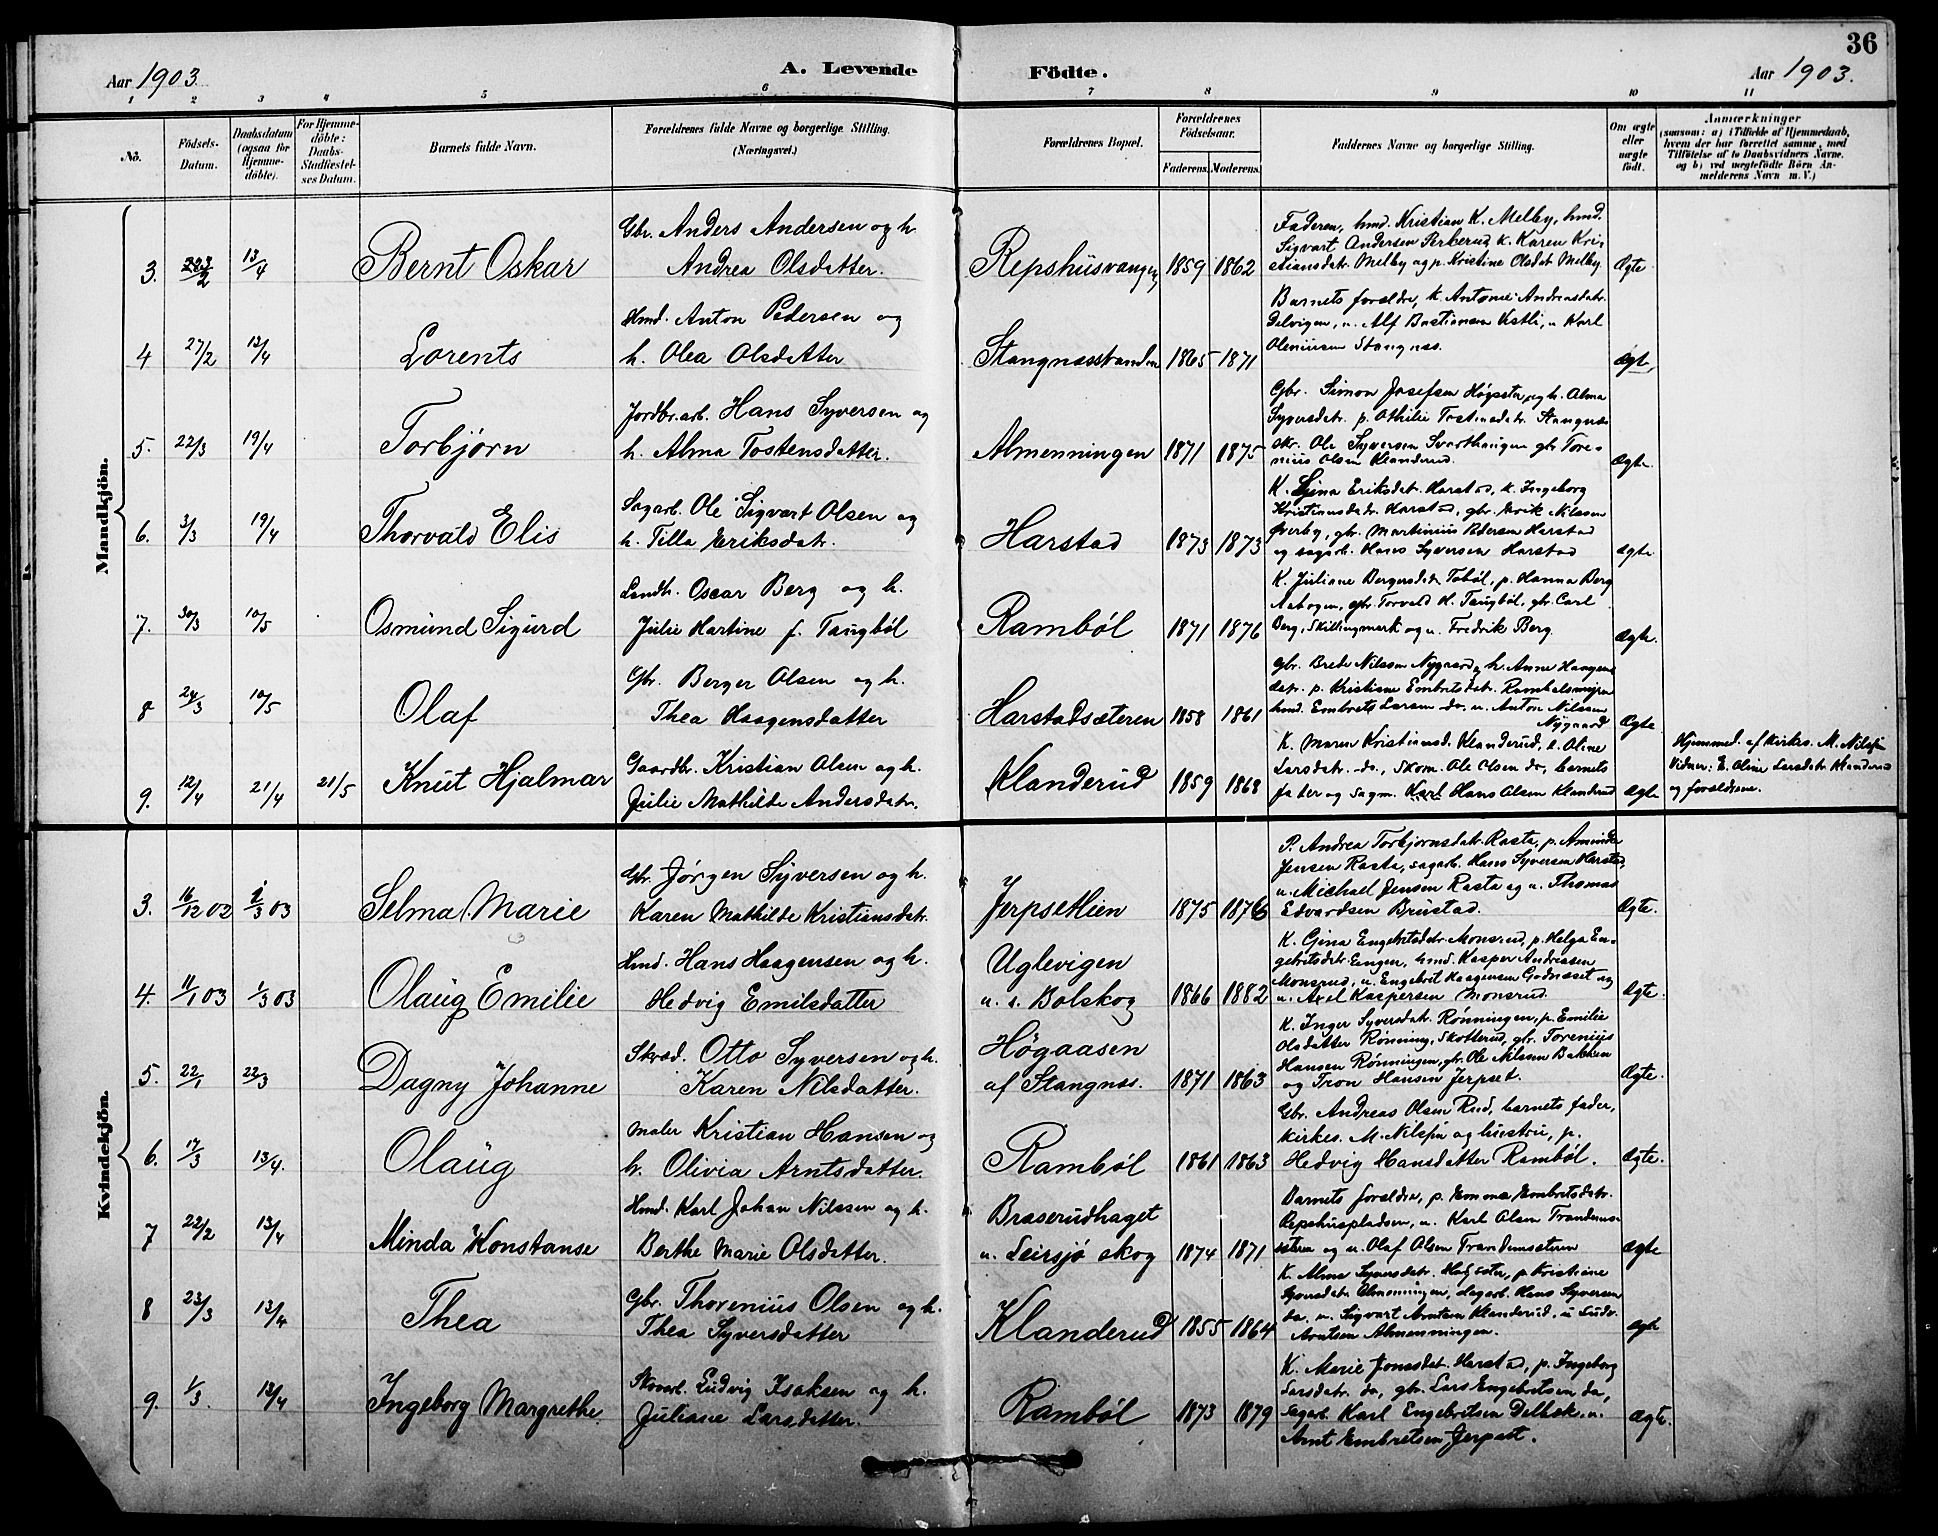 36
Aar 1903.
A. Levende
Födte.
Aar 1903.
1 2 3 4 5 6 7 8 9 10 11
No.
Födsels-
Datum.
Daabsdatum
(ogsaa for
Hjemme-
döbte).
For Hjemme-
döbte:
Daabs-
Stadfæstel-
ses Datum.
Barnets fulde Navn.
Forældrenes fulde Navne og borgerlige Stilling.
(Næringsvei.)
Forældrenes Bopæl.
Forældrenes
Födselsaar.
Faderens. Moderens.
Faddernes Navne og borgerlige Stilling.
Om ægte
eller
uægte
födt.
Anmærkninger
(saasom: a) i Tilfælde af Hjemmedaab,
hvem der har forrettet samme, med
Tilföielse af to Daabsvidners Navne.
og b) ved uægtefödte Börn An-
melderens Navn m. V.)
Mandkjön.
3. 13/4 Bernt Oskar
Gbr. Anders Andersen og h.
Andrea Olsdatter.
Repshusvangen 1859 1862
Faderen, hmd. Kristian K. Melby, hmd.
Sigvart Andersen Perberud, k. Karen Kri-
stiansdatr. Melby og p. Kristine Olsdat. Melby
Ægte
4 27/2 13/4 Lorents
Hmd. Anton Pedersen og
h. Olea Olsdatter
Stangnesstranden 1865 1871
Barnets forældre, k. Antonie Andreasdatr.
Delvigen, u. Alf Bastiansen Vestli, u Karl
Oleniusen Stangnæs.
Ægte,
5. 22/3 19/4 Torbjørn
Jordbr.arb. Hans Syversen og
h. Alma Tostensdatter.
Almenningen 1871 1875
Gbr. Simon Josefsen Høgset, og h. Alma
Syversdatr. p. Othilie Tostensdatr. Stangnes
skr. Ole Syversen Svarthaugen gbr Tore-
nius Olsen Klanderud.
Ægte.
6. 3/3 19/4 Thorvald Elis
Sagarb. Ole Sigvart Olsen og
h. Tilla Eriksdatr.
Harstad 1873 1873
K. Gina Eriksdatr. Harstad, k. Ingeborg
Kristiansdatr. Harstad, gbr. Erik Nilssen
Øverby, gbr. Martinius Pedersen Harstad
og sagarb. Hans Syversen Harstad
Ægte
7. 30/3 10/5 Osmund Sigurd
Landh. Oscar Berg og h.
Julie Martine f. Taugbøl
Rambøl 1871 1876
K. Juliane Bergersdatr. Tobøl, p. Hanna Berg
Aabogen, gbr. Torvald H. Taugbøl, gbr. Carl
Berg, Skillingmark og u. Fredrik Berg.
Ægte.
8 24/3 10/5 Olaf
Gbr. Berger Olsen og h.
Thea Haagensdatter
Harstadsæteren 1858 1861
Gbr. Brede Nilssen Nygaard og h. Anne Haagens
datr. p. Kristiane Embretsdatr. Rambølsmyra
hmd. Embret Larsen do. u. Anton Nilssen
Nygaard
Ægte
9. 12/4 21/4 21/5 Knut Hjalmar
Gaardbr. Kristian Olsen og h.
Julie Mathilde Andersdatr.
Klanderud 1859 1868
K. Maren Kristiansd. Klanderud, e. Oline
Larsdatr. do., Skom. Ole Olsen do, barnets
fader og sagm. Karl Hans Olsen Klanderud
Ægte
Hjemmed. af Kirkes. M. Nilsen
Vidner: E. Oline Larsdatr. Klanderud
og forældrene.
Kvindekjön.
3. 16/12 02 1/3 03 Selma Marie
Gbr. Jørgen Syversen og h.
Karen Mathilde Kristiansdatr.
Jerpsetlien 1875 1876
P. Andrea Torbjørnsdatr. Rasta, p. Aminda
Jensen Rasta, sagarb. Hans Syversen Harstad,
u. Michael Jensen Rasta og u. Thomas
Edvardsen Brustad.
Ægte.
4. 11/1 03 1/3 03 Olaug Emilie
Hmd. Hans Haagensen og h.
Hedvig Emilsdatter
Uglevigen
u. s. Bolskog 1866 1882
K. Gina Engebretsdatr. Monsrud, p. Helga En-
gebretsdatr. Engen, hmd. Kasper Andreasen
Monsrud, u. Engebret Haagensen Godnæset og
u. Axel Kaspersen Monsrud.
Ægte.
5. 22/1 22/3 Dagny Johanne
Skræd. Otto Syversen og h.
Karen Nilsdatter.
Høgaasen
af Stangnæs. 1871 1863
K. Inger Syversdatr. Rønningen, p. Emilie
Olsdatter Rønning, Skotterud, gbr. Torenius
Hansen Rønningen, gbr. Ole Nilssen Bakken
og Tron Hansen Jerpset.
Ægte.
6. 17/3 13/4. Olaug
Maler Kristian Hansen og
h. Olivia Arntsdatter.
Rambøl 1861 1863
Gbr. Andreas Olsen Rud, barnets fader,
Kirkes. M. Nilsen og hustru, p.
Hedvig Hansdatter Rambøl.
Ægte.
7 22/2 13/4 Minda Konstanse
Hmd. Karl Johan Nilssen og h.
Berthe Marie Olsdatter.
Braserudhaget
u. Leirsjø skog 1874 1871
Barnets forældre, p. Emma Embretsdatr.
Repshuspladsen, u. Karl Olsen Trandems-
sæteren og u. Olaf Olsen Trandemsæteren
Ægte
8 23/3 13/4 Thea
Gbr. Thorenius Olsen og h.
Thea Syversdatter
Klanderud 1855 1864
K. Alma Syversdatr. Høgset, p Kristine
Syversdatr. Almenningen, sagarb. Hans Syversen
do, u. Sigvart Arntsen Klanderud, u Ludv.
Arntsen Almenningen.
Ægte
9. 1/3. 13/4 Ingeborg Margrethe.
Skovarb. Ludvig Isaksen og h.
Juliane Larsdatter.
Rambøl 1873 1879
K. Marie Jonsdat. Harstad, p. Ingeborg
Larsdatr. do, gbr. Lars Engebretsen do,
Sagarb. Karl Engebretsen Delbæk, u.
Arnt Embretsen Jerpset.
Ægte.